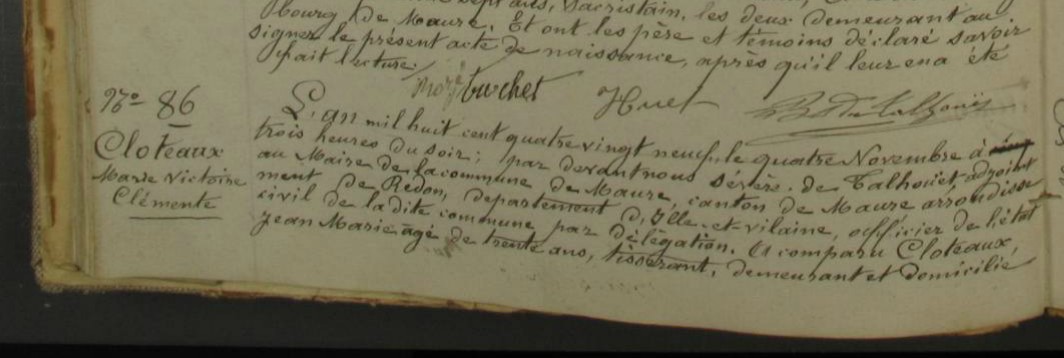 sept ans, sacristain, les deux demeurant au
Bourg de Maure. Et ont les père et témoins déclaré savoir
signer le présent acte de naissance, après qu'il leur en a été
fait lecture.
Huet
N° 86
Cloteaux
Marie Victoire
Clémente
L'an mil huit cent quatre vingt neuf, le quatre Novembre à
trois heures du soir; par devant nous Sévère de Talhouët, adjoint
au Maire de la commune de Maure, canton de Maure arrondisse
ment de Redon, département d'Ille-et-vilaine, officier de l'état
civil de la dite commune par délégation. A comparu Cloteaux,
Jean Marie âgé de trente ans, tisserant, demeurant et domicilié